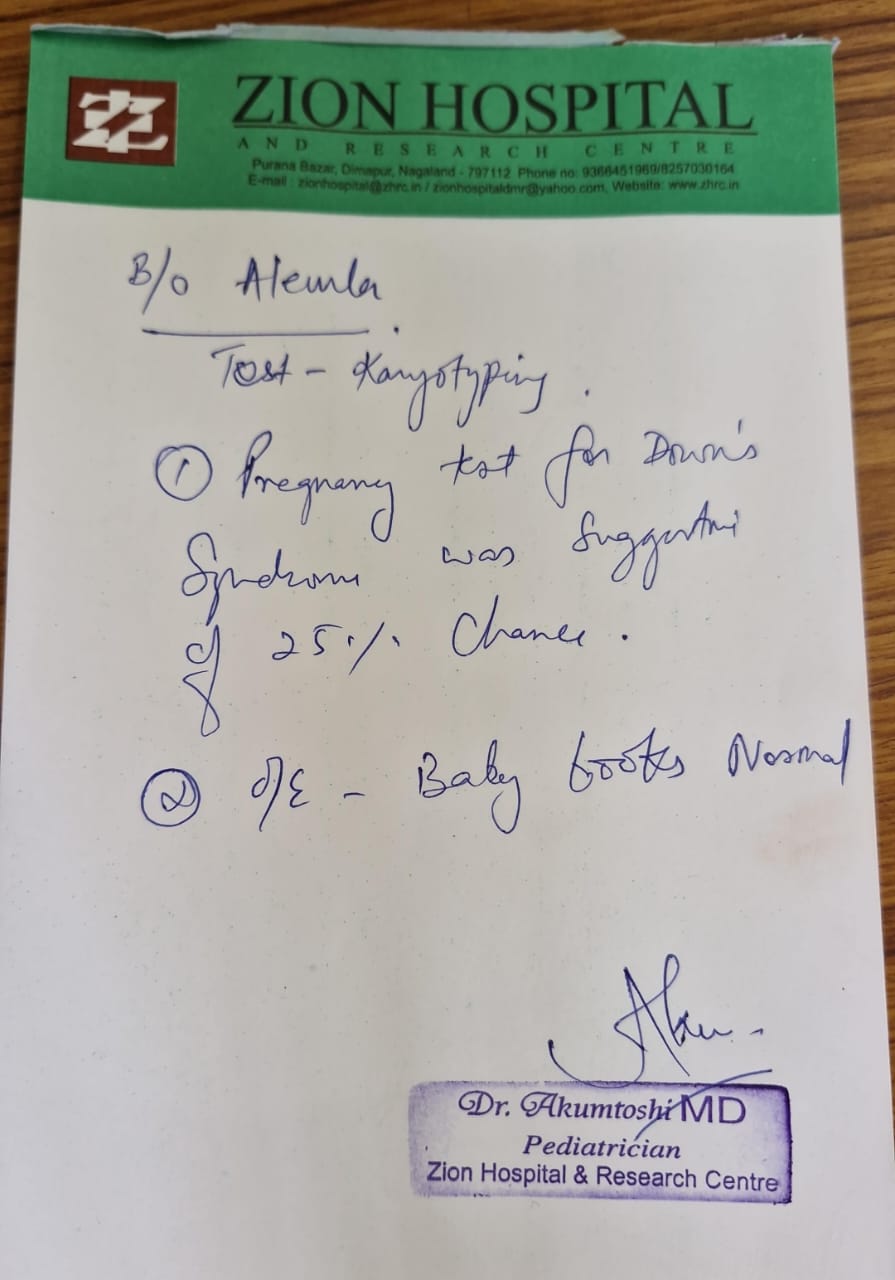 ZION HOSPITAL
AND RESEARCH CENTRE
Purana Bazar, Dimapur, Nagaland - 797112 Phone no: 9366451969/8257030164
E-mail : zionhospital@zhrc.in / zionhospitaldmr@yahoo.com, Website: www.zhrc.in
B/o Alemla
Test - Karyotyping.
① Pregnancy test for Down's
Syndrome was suggestive
of 25% Chance.
② O/E - Baby looks Normal
Dr. Akumtoshi MD
Pediatrician
Zion Hospital & Research Centre